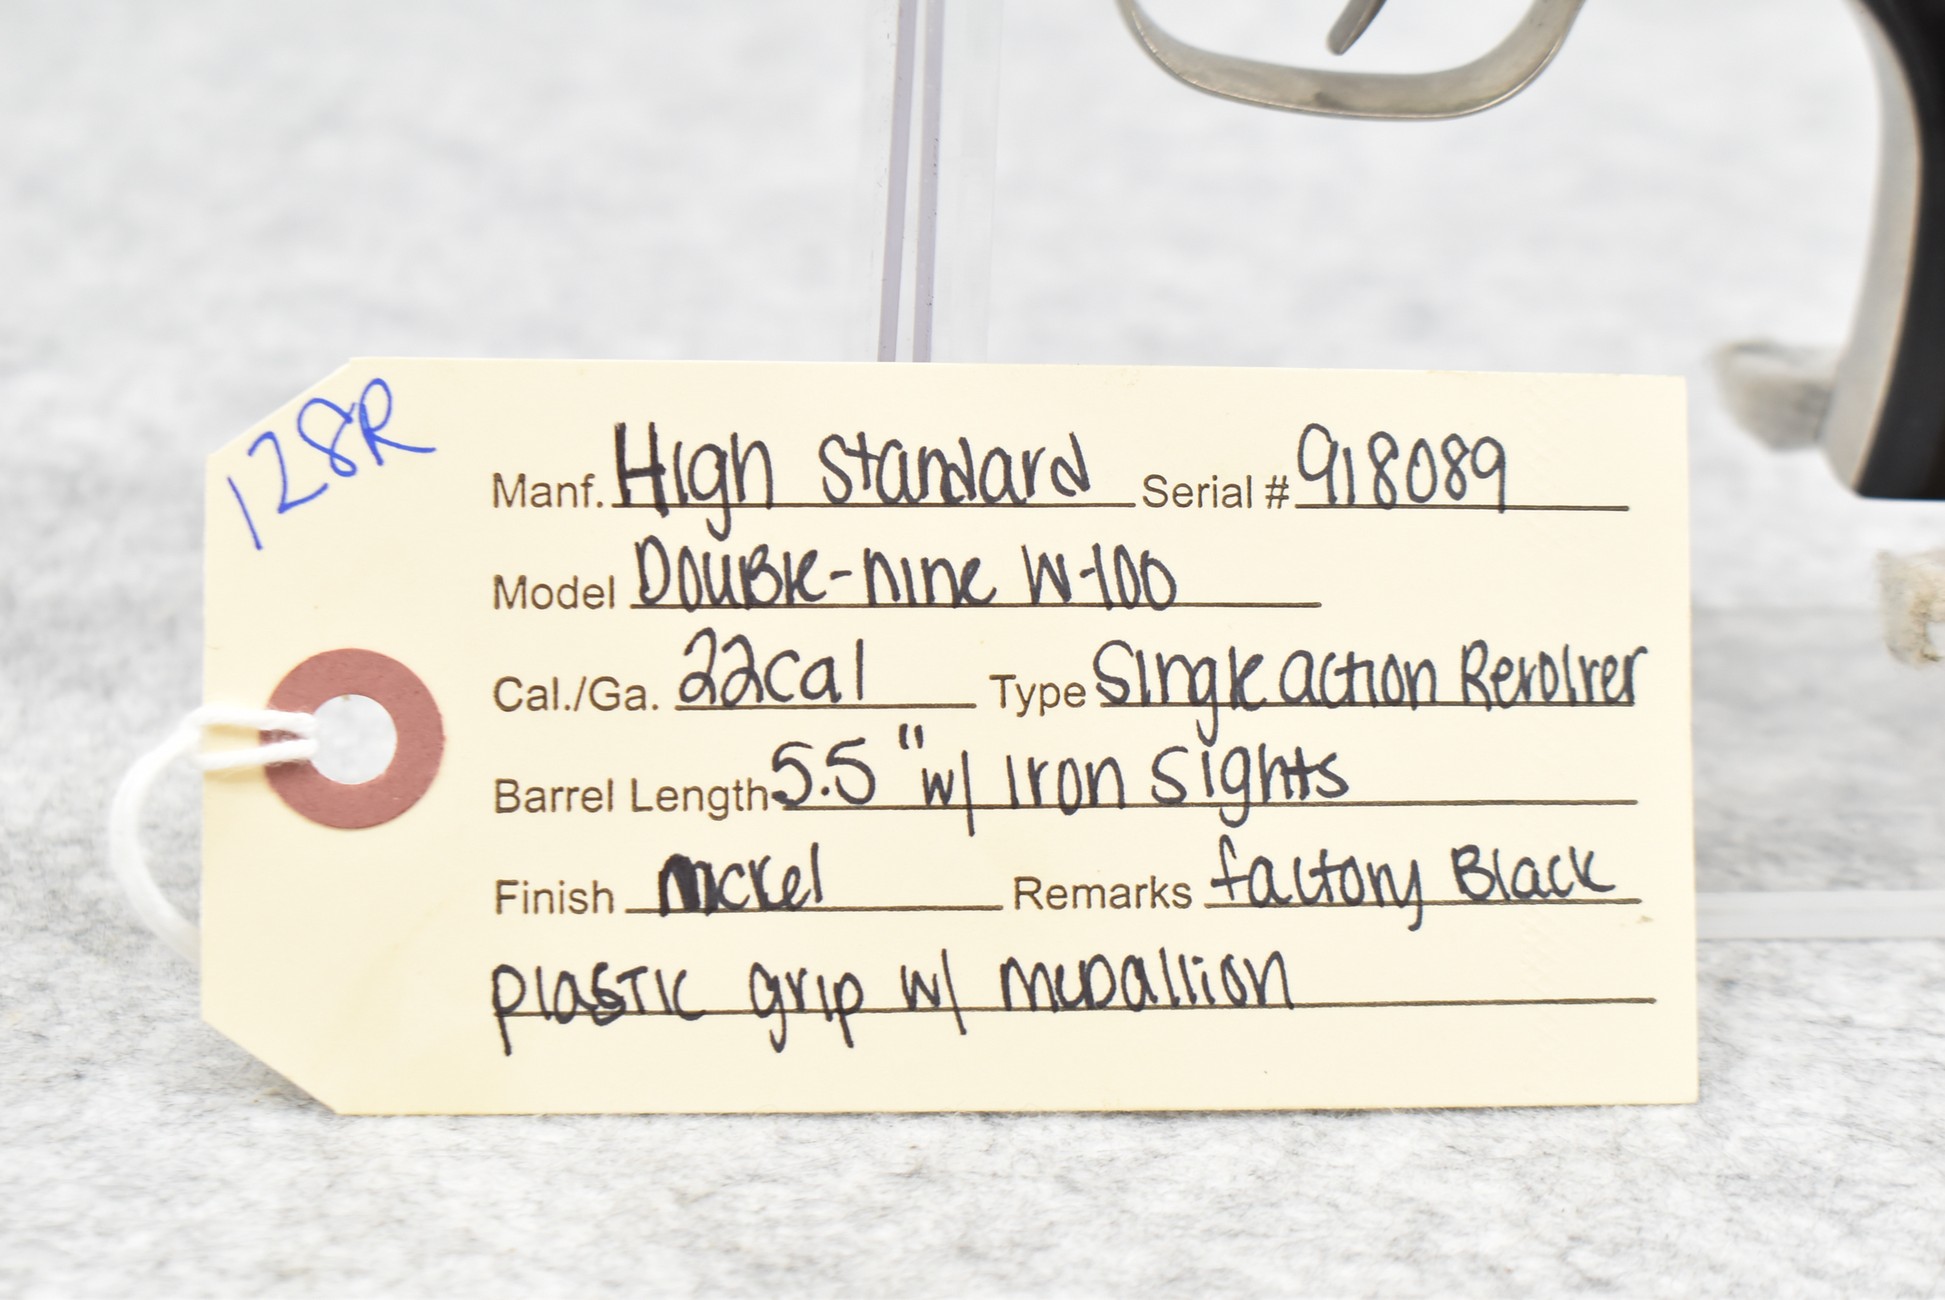 128R
Manf. High Standard Serial # 918089
Model Double-nine W-100
Cal./Ga. 22cal Type Single action Revolver
Barrel Length 5.5" w/ Iron Sights
Finish nickel Remarks factory Black
plastic grip w/ medallion